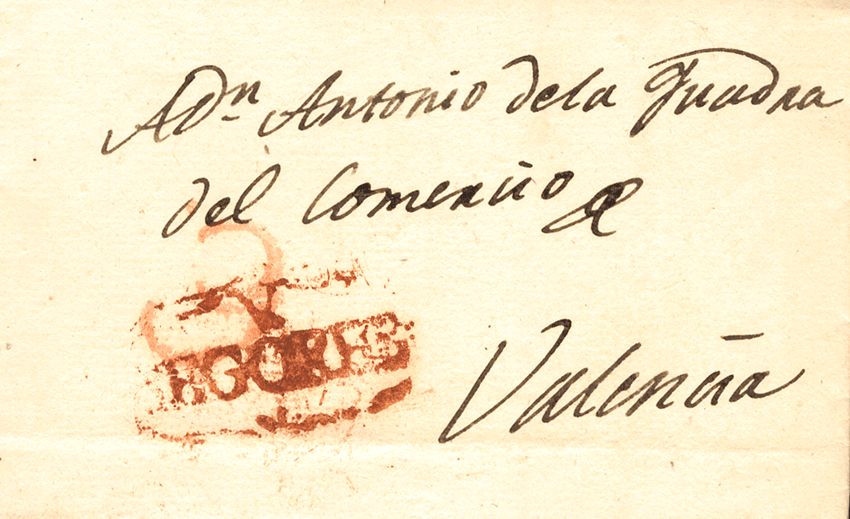 A Dn Antonio dela Quadra
del Comercio
Valencia
3
V
SEGORBE